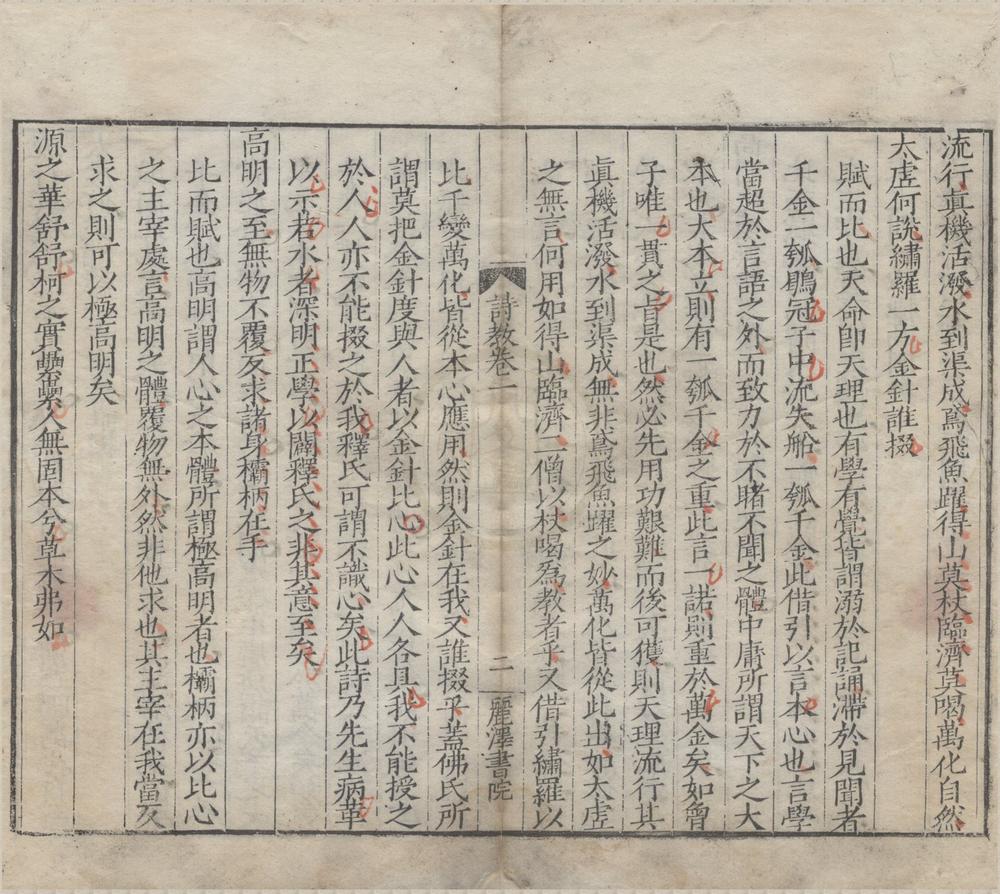 流行真機活潑水到渠成鳶飛魚躍得山莫杖臨濟莫喝萬化自然
太虛何說繡羅一方金針誰掇
賦而比也天命卽天理也有學有覺皆謂溺於記誦滯於見聞者
千金一瓠鶡冠子中流失船一瓠千金此借引以言本心也言學
當超於言語之外而致力於不睹不聞之體中庸所謂天下之大
本也大本立則有一瓠千金之重此言一諾則重於萬金矣如曾
子唯一貫之旨是也然必先用功艱難而後可獲則天理流行其
眞機活潑水到渠成無非鳶飛魚躍之妙萬化皆從此出如太虛
之無言何用如得山臨濟二僧以杖喝為教者乎又借引繡羅以
詩教卷二
二
麗澤書院
比千變萬化皆從本心應用然則金針在我又誰掇乎蓋佛氏所
謂莫把金針度與人者以金針比心此心人人各具我不能授之
於人人亦不能掇之於我釋氏可謂不識心矣此詩乃先生病革
以示若水者深明正學以闢釋氏之非其意至矣
高明之至無物不覆反求諸身欛柄在手
比而賦也高明謂人心之本體所謂極高明者也欛柄亦以比心
之主宰處言高明之體覆物無外然非他求也其主宰在我當反
求之則可以極高明矣
源之華舒舒柯之實纍纍人無固本兮草木弗如